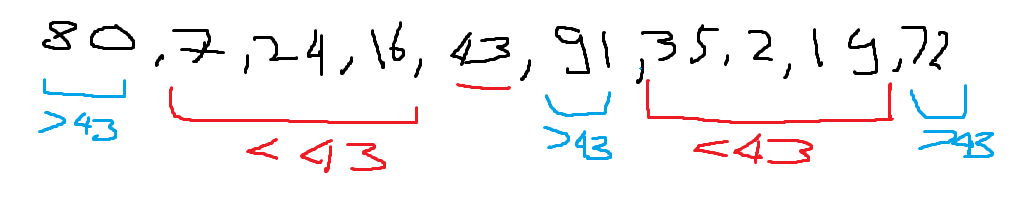 80, 7, 24, 16, 43, 91, 35, 2, 19, 72
>43 <43 >43 <43 >43